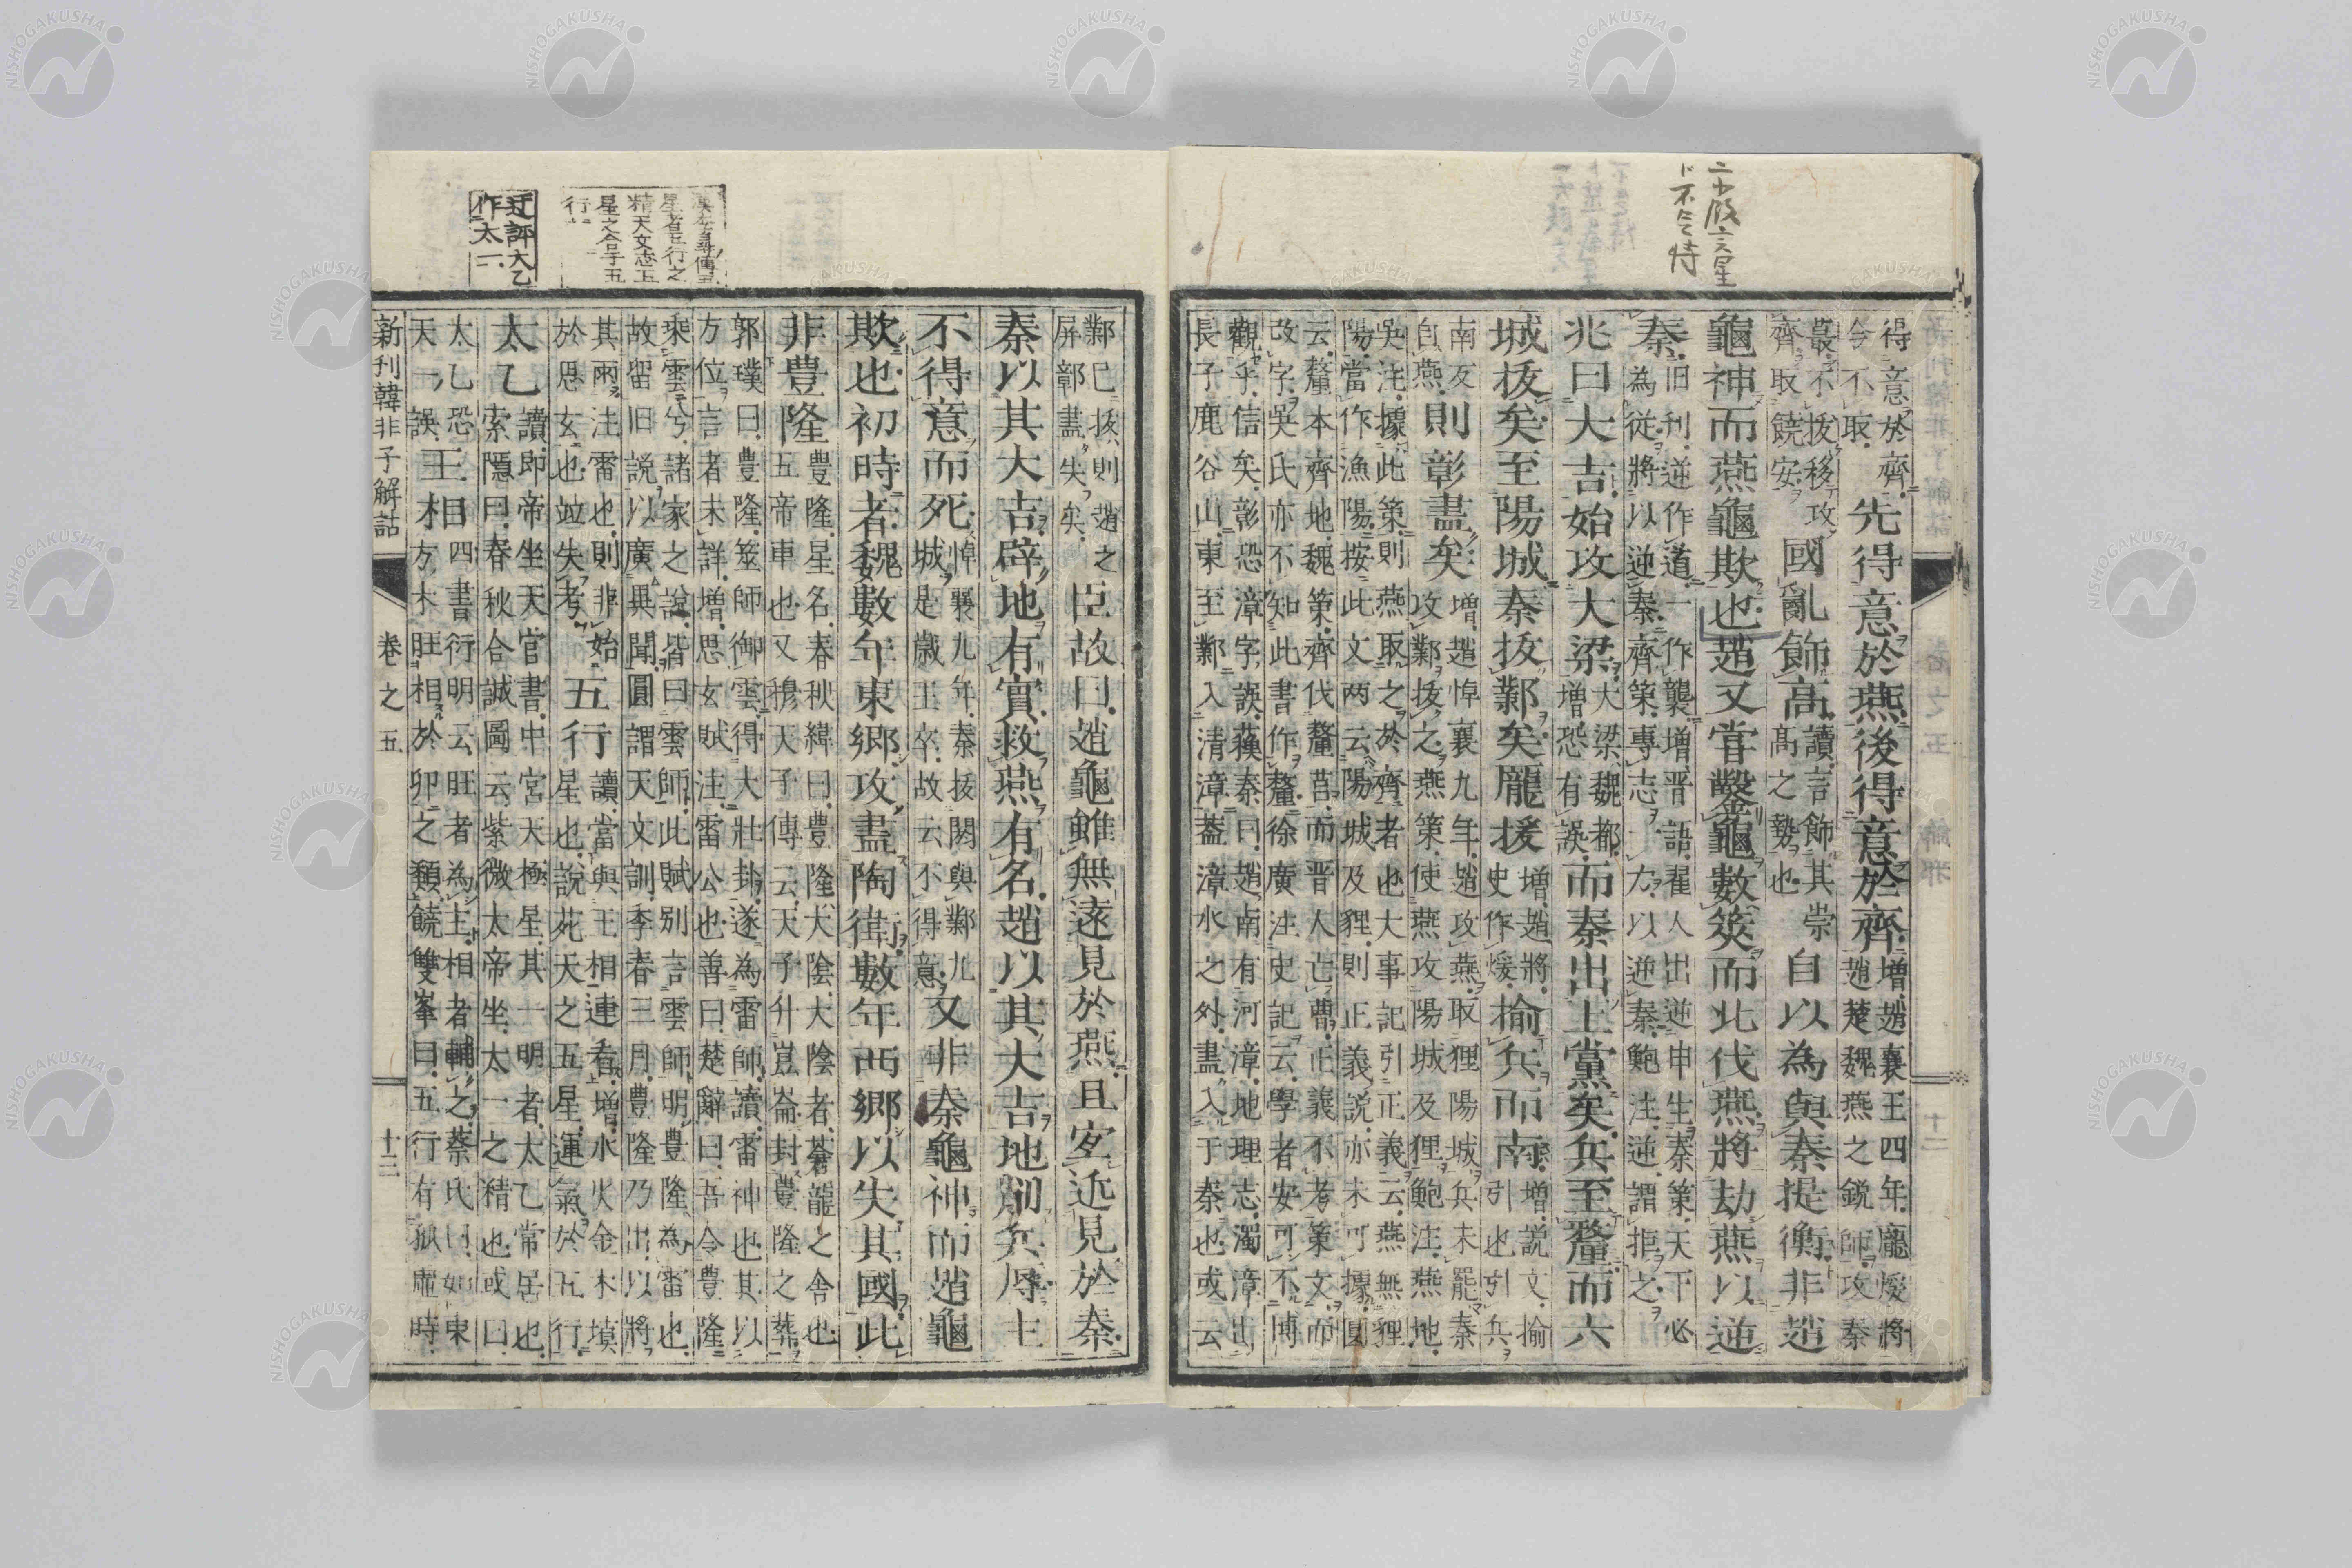 得意於齊
今不取
先得意於燕後得意於齊
增趙襄王四年龐煖將
趙楚魏燕之銳師攻秦
蕞不拔移攻
齊取饒安
國亂飾高
讀言飾其崇
高之勢也
自以為與秦提衡非趙
龜神而燕龜欺也趙又嘗鑿龜數筴而北伐燕將劫燕以逆
秦
旧刊逆作道一作襲增晋語翟人出逆申生秦策天下必
為從將以逆秦齊策專志一力以逆秦鮑注逆謂拒之
兆曰大吉始攻大梁
大梁魏都
增恐有誤
而秦出上黨矣兵至釐而六
城拔矣至陽城秦拔鄴矣龐援
增趙將
史作煖
揄兵而南
增說文揄
引也引兵
南反
自燕
則彰盡矣
增趙悼襄九年趙攻燕取狸陽城兵未罷秦
攻鄴拔之燕策使燕攻陽城及狸鮑注燕地
吳注據此策則燕取之於齊者也大事記引正義云燕無狸
陽當作漁陽按此文两云陽城及狸則正義說亦未可據圓
云釐本齊地魏策齊伐釐莒而晋人亡曹正義不考策文而
改字吳氏亦不知此書作釐徐廣注史記云學者安可不博
觀乎信矣彰恐漳字誤蘇秦曰趙南有河漳地理志濁漳出
長子鹿谷山東至鄴入清漳蓋漳水之外盡入于秦也或云
鄴已拔則趙之
屏鄣盡失矣
臣故曰趙龜雖無遠見於燕且宐近見於秦
秦以其大吉辟地有實救燕有名趙以其大吉地削兵辱主
不得意而死
悼襄九年秦拔閼與鄴九
城是歲王卒故云不得意
又非秦龜神而趙龜
欺也初時者魏數年東鄉攻盡陶衛數年西鄉以失其國此
非豊隆
豊隆星名春秋緯曰豊隆大陰大陰者蒼龍之舍也
五帝車也又穆天子傳云天子升崑崙封豊隆之葬
郭璞曰豊隆筮師御雲得大壯卦遂為雷師讀雷神也其以
方位言者未詳增思玄賦注雷公也善曰楚辭曰吾令豊隆
乘雲兮諸家之說皆曰雲師此賦別言雲師明豊隆為雷也
故留旧説以廣異聞圓謂天文訓季春三月豊隆乃出以將
其雨注雷也則非始
於思玄也竝失考
五行
讀當與王相連看增水火金木填
星也說苑天之五星運氣於五行
太乙
讀即帝坐天官書中宮天極星其一明者太乙常居也
索隱曰春秋合誠圖云紫微太帝坐太一之精也或曰
太乙恐
天一誤
王相
四書衍明云旺者為主相者輔之蔡氏曰如東
方木旺相於卯之類饒雙峯曰五行有孤虛時
新刊韓非子解詁 卷之五 十三
漢李尋傳五
星者五行之
精天文志五
星之合乎五
行
迂評太乙
作太一
NISHOGAKUSHA